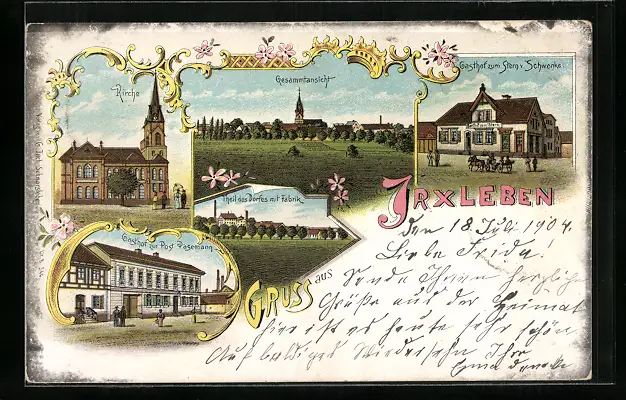 Kirche
Gesammtansicht
Gasthof zum Stern v. Schwenke.
Theil des Dorfes mit Fabrik
IRXLEBEN
Gasthof zur Post
GRUSS aus
den 18. Juli 1904.
Liebe Frida!
Sende Ihnen herzliche
Grüße aus der Heimat
hier ist es heute sehr schön
Auf baldiges Wiedersehn Ihre
Erna